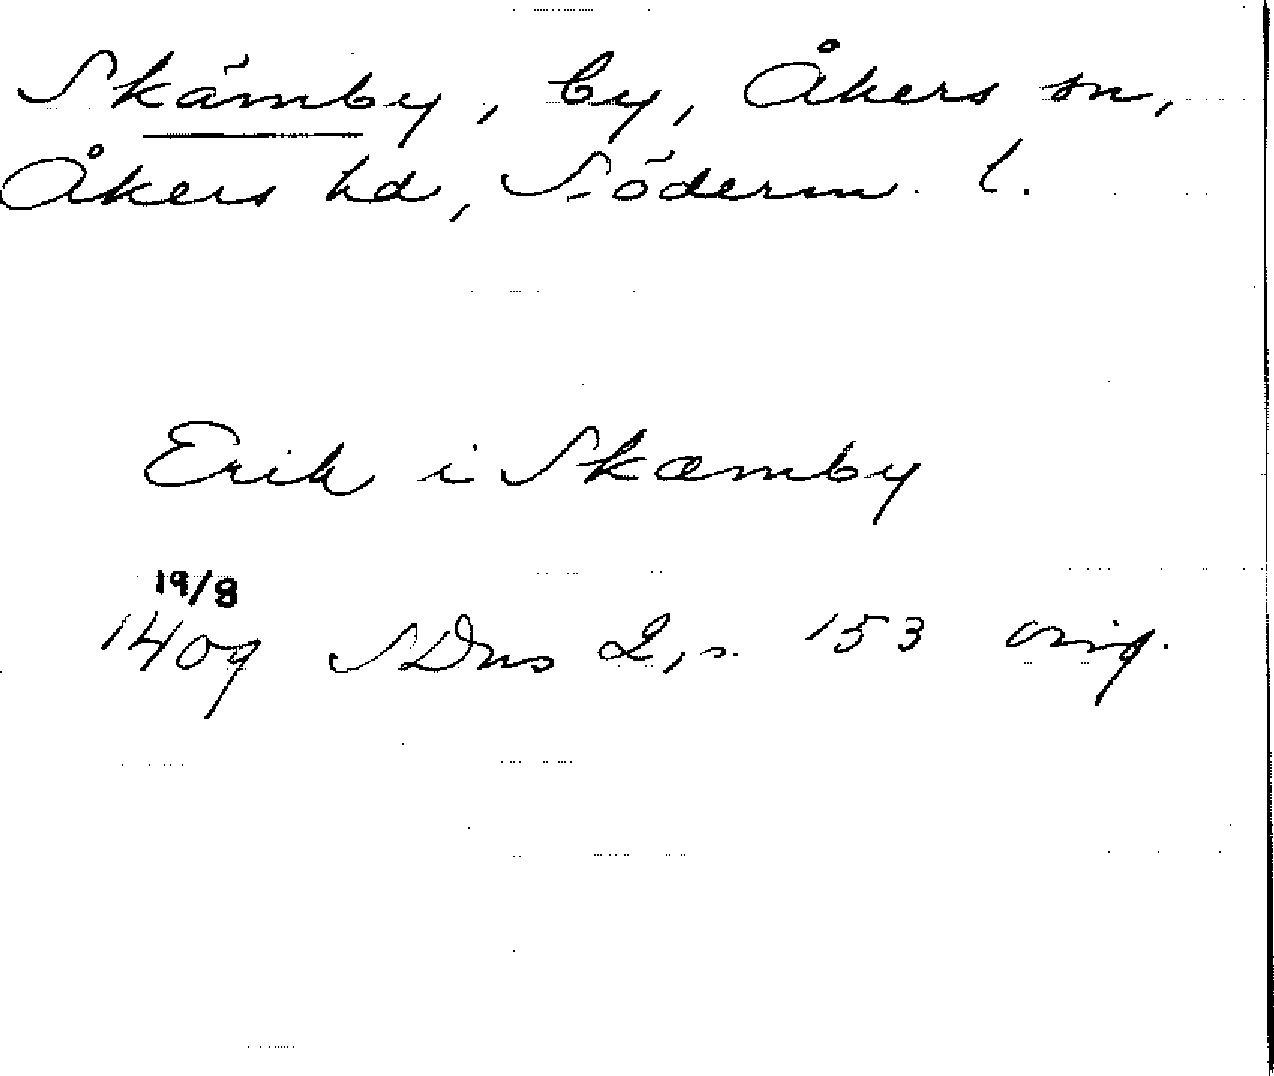 Skämby, by, Åkers sn,
Åkers hd, Söderm. l.
Erik i Skæmby
19/8
1409 SDns 2, s. 153 orig.